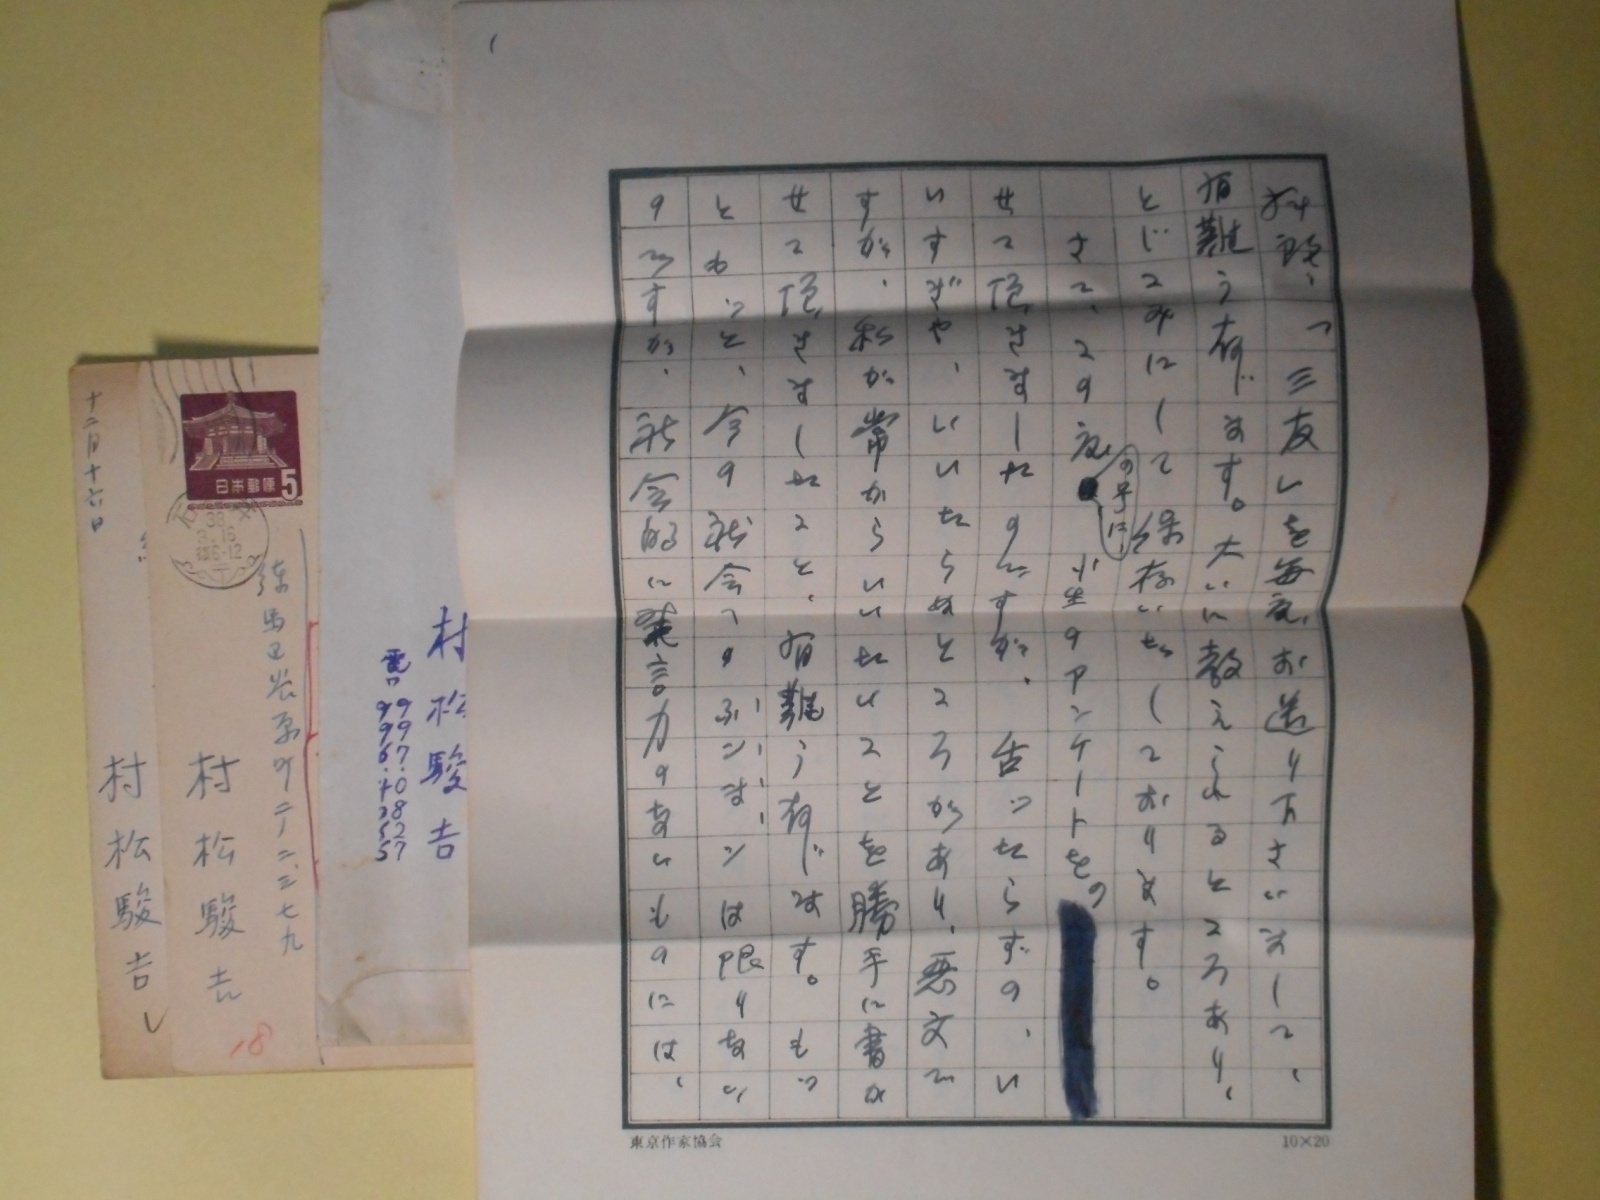 拝啓、「三友」を毎度お送り下さいまして、
有難う存じます。大いに教えられるところあり、
とじこみにして保存いたしております。
さて、この度の号に小生のアンケートを
せて頂きましたのですが、舌ったらずの、い
いすぎや、いいたらぬところがあり、悪文で
すが、私が常からいいたいことを勝手に書か
せて頂きましたこと、有難う存じます。もっ
ともっと、今の社会へのふンまンは限りない
のですが、社会的に発言力のないものには、
東京作家協会
10×20
村松駿吉
電
999967.
日本郵便
5
38
3.16
練馬区谷原町二ノ二、三七九
村松駿吉
18
十二月十六日
村松駿吉